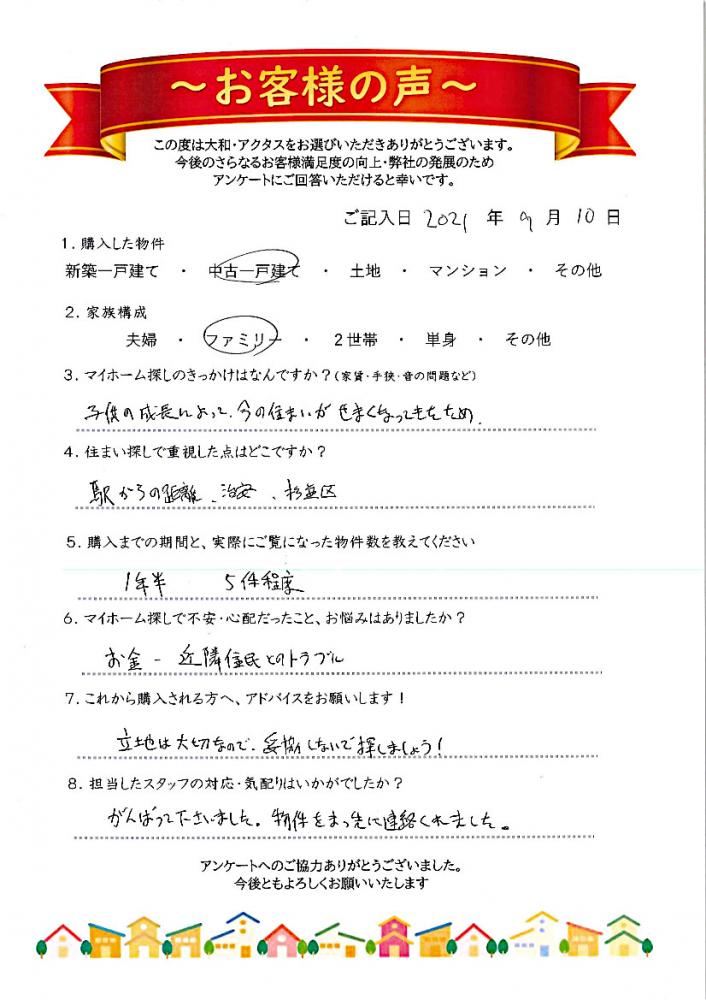 ～お客様の声～
この度は大和・アクタスをお選びいただきありがとうございます。
今後のさらなるお客様満足度の向上・弊社の発展のため
アンケートにご回答いただけると幸いです。
ご記入日 2021 年 9 月 10 日
1. 購入した物件
新築一戸建て ・ 中古一戸建て ・ 土地 ・ マンション ・ その他
2. 家族構成
夫婦 ・ ファミリー ・ 2世帯 ・ 単身 ・ その他
3. マイホーム探しのきっかけはなんですか？(家賃・手狭・音の問題など)
子供の成長によって、今の住まいがせまくなってきたため。
4. 住まい探しで重視した点はどこですか？
駅からの距離、治安、杉並区
5. 購入までの期間と、実際にご覧になった物件数を教えてください
1年半 5件程度
6. マイホーム探しで不安・心配だったこと、お悩みはありましたか？
お金 - 近隣住民とのトラブル
7. これから購入される方へ、アドバイスをお願いします！
立地は大切なので、妥協しないで探しましょう！
8. 担当したスタッフの対応・気配りはいかがでしたか？
がんばって下さいました。物件をまっ先に連絡くれました。
アンケートへのご協力ありがとうございました。
今後ともよろしくお願いいたします